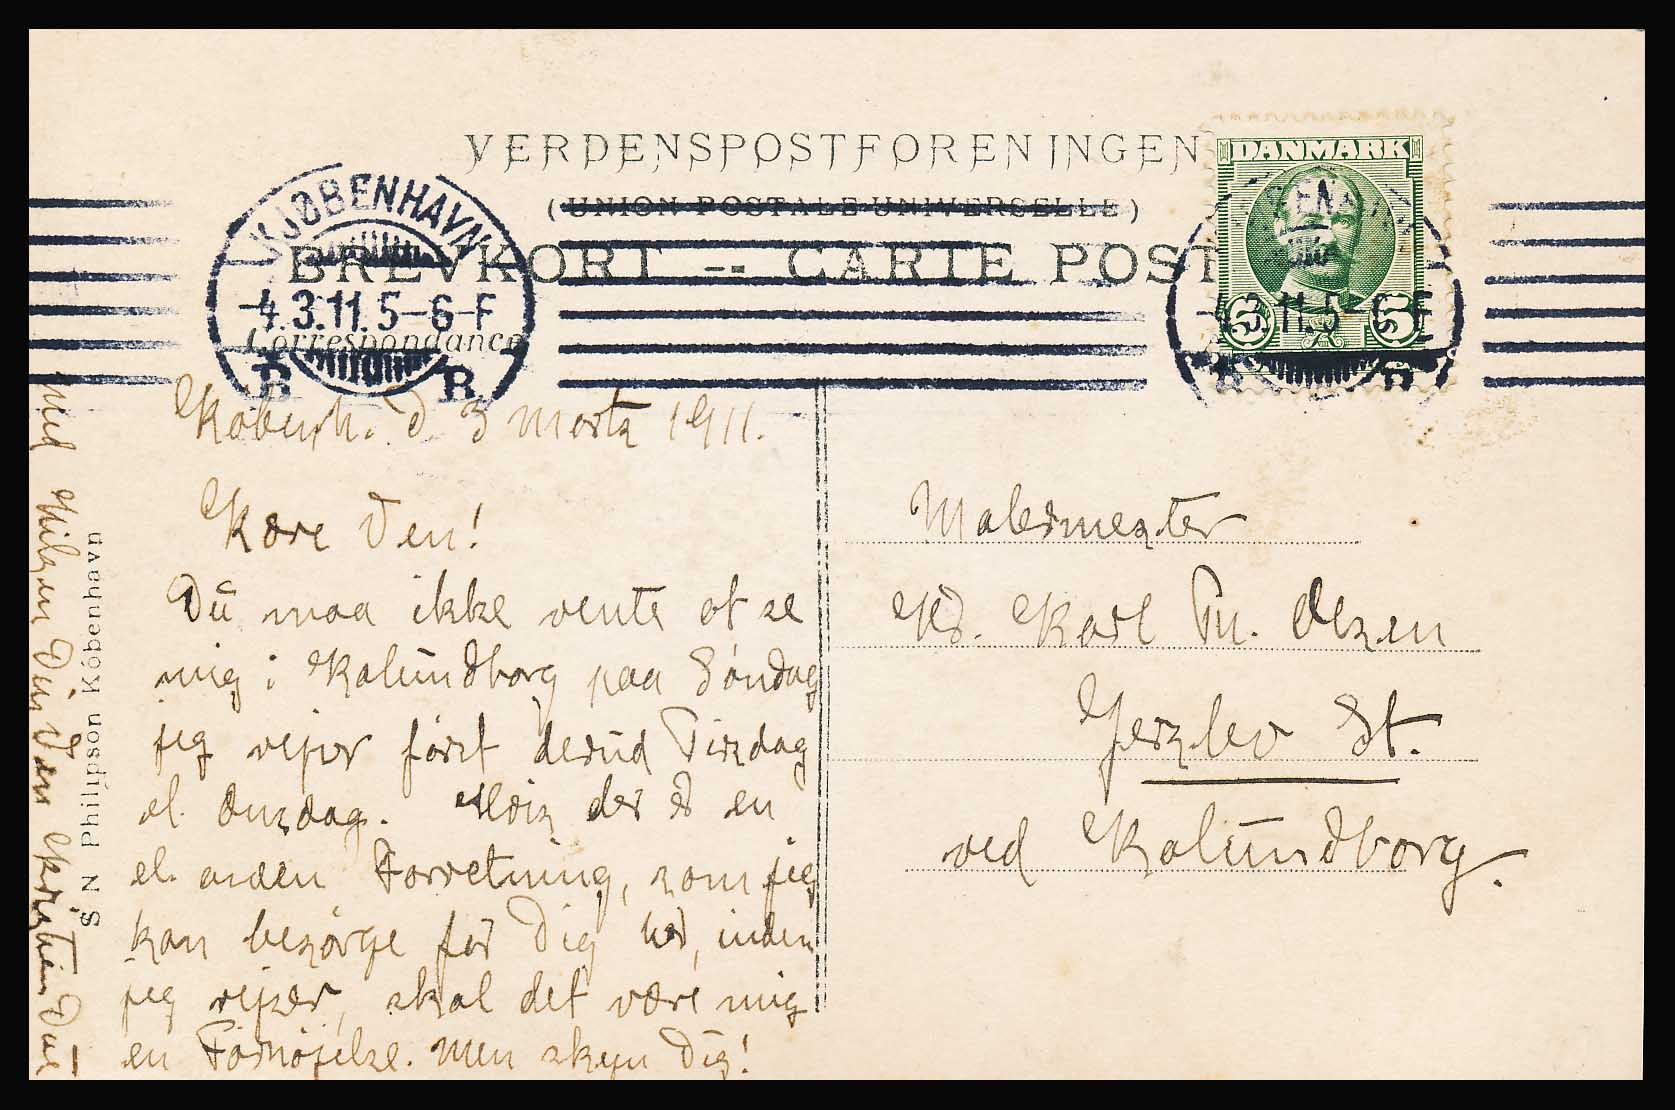 VERDENSPOSTFORENINGEN
(UNION POSTALE UNIVERSELLE)
BREVKORT -- CARTE POST
DANMARK
5 5
KJØBENHAVN
-4.3.11. 5-6-F
B B
Correspondance
Københ. d 3 Marts 1911.
Kære Ven!
Du maa ikke vente at se
mig i Kalundborg paa Søndag
jeg rejser først derud Tirsdag
el. Onsdag. Hvis der er en
el. anden Forretning, som jeg
kan besørge for Dig her, inden
jeg rejser, skal det være mig
en Fornøjelse. Men skyn Dig!
Med Hilsen Din Ven Kristian Due
S N Philipson København
Malermester
Hr. Karl Th. Olsen
Jerslev St.
ved Kalundborg.